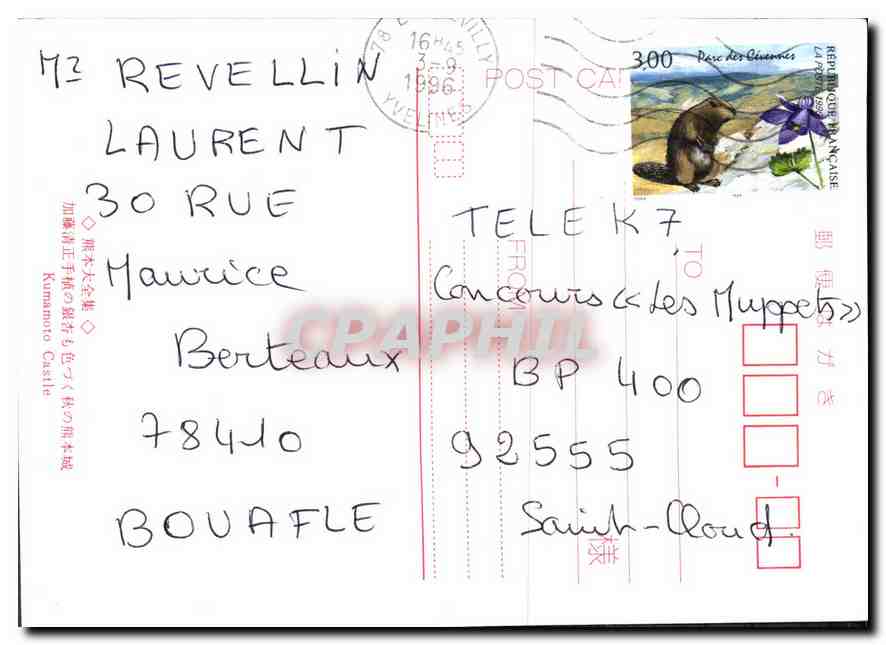 Mr REVELLIN
LAURENT
30 RUE
Maurice
Berteaux
78410
BOUAFLE
◇ 熊本大全集 ◇
加藤清正手植の銀杏も色づく秋の熊本城
Kumamoto Castle
16H45
3-9
1996
YVELINES
POST CA
3,00 Parc des Cévennes
RÉPUBLIQUE FRANÇAISE
LA POSTE 1996
TELE K7
Concours «Les Muppets»
BP 400
92555
Saint-Cloud.
FROM
TO
様
郵便はがき
CPAPHIL